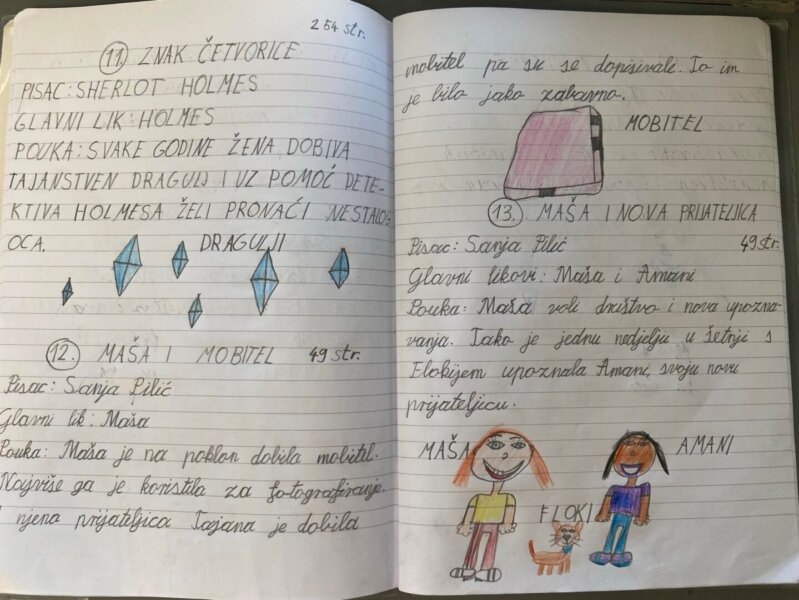 254 str.
11. ZNAK ČETVORICE
PISAC: SHERLOT HOLMES
GLAVNI LIK: HOLMES
POUKA: SVAKE GODINE ŽENA DOBIVA
TAJANSTVEN DRAGULJ I UZ POMOĆ DETE-
KTIVA HOLMESA ŽELI PRONAĆI NESTALOG
OCA.
DRAGULJI
12. MAŠA I MOBITEL 49 str.
Pisac: Sanja Pilić
Glavni lik: Maša
Pouka: Maša je na poklon dobila mobitel.
Najviše ga je koristila za fotografiranje.
I njena prijateljica Tajana je dobila
mobitel pa su se dopisivale. To im
je bilo jako zabavno.
MOBITEL
13. MAŠA I NOVA PRIJATELJICA
Pisac: Sanja Pilić 49 str.
Glavni likovi: Maša i Amani
Pouka: Maša voli društvo i nova upozna-
vanja. Tako je jednu nedjelju u šetnji s
Flokijem upoznala Amani, svoju novu
prijateljicu.
MAŠA
AMANI
FLOKI